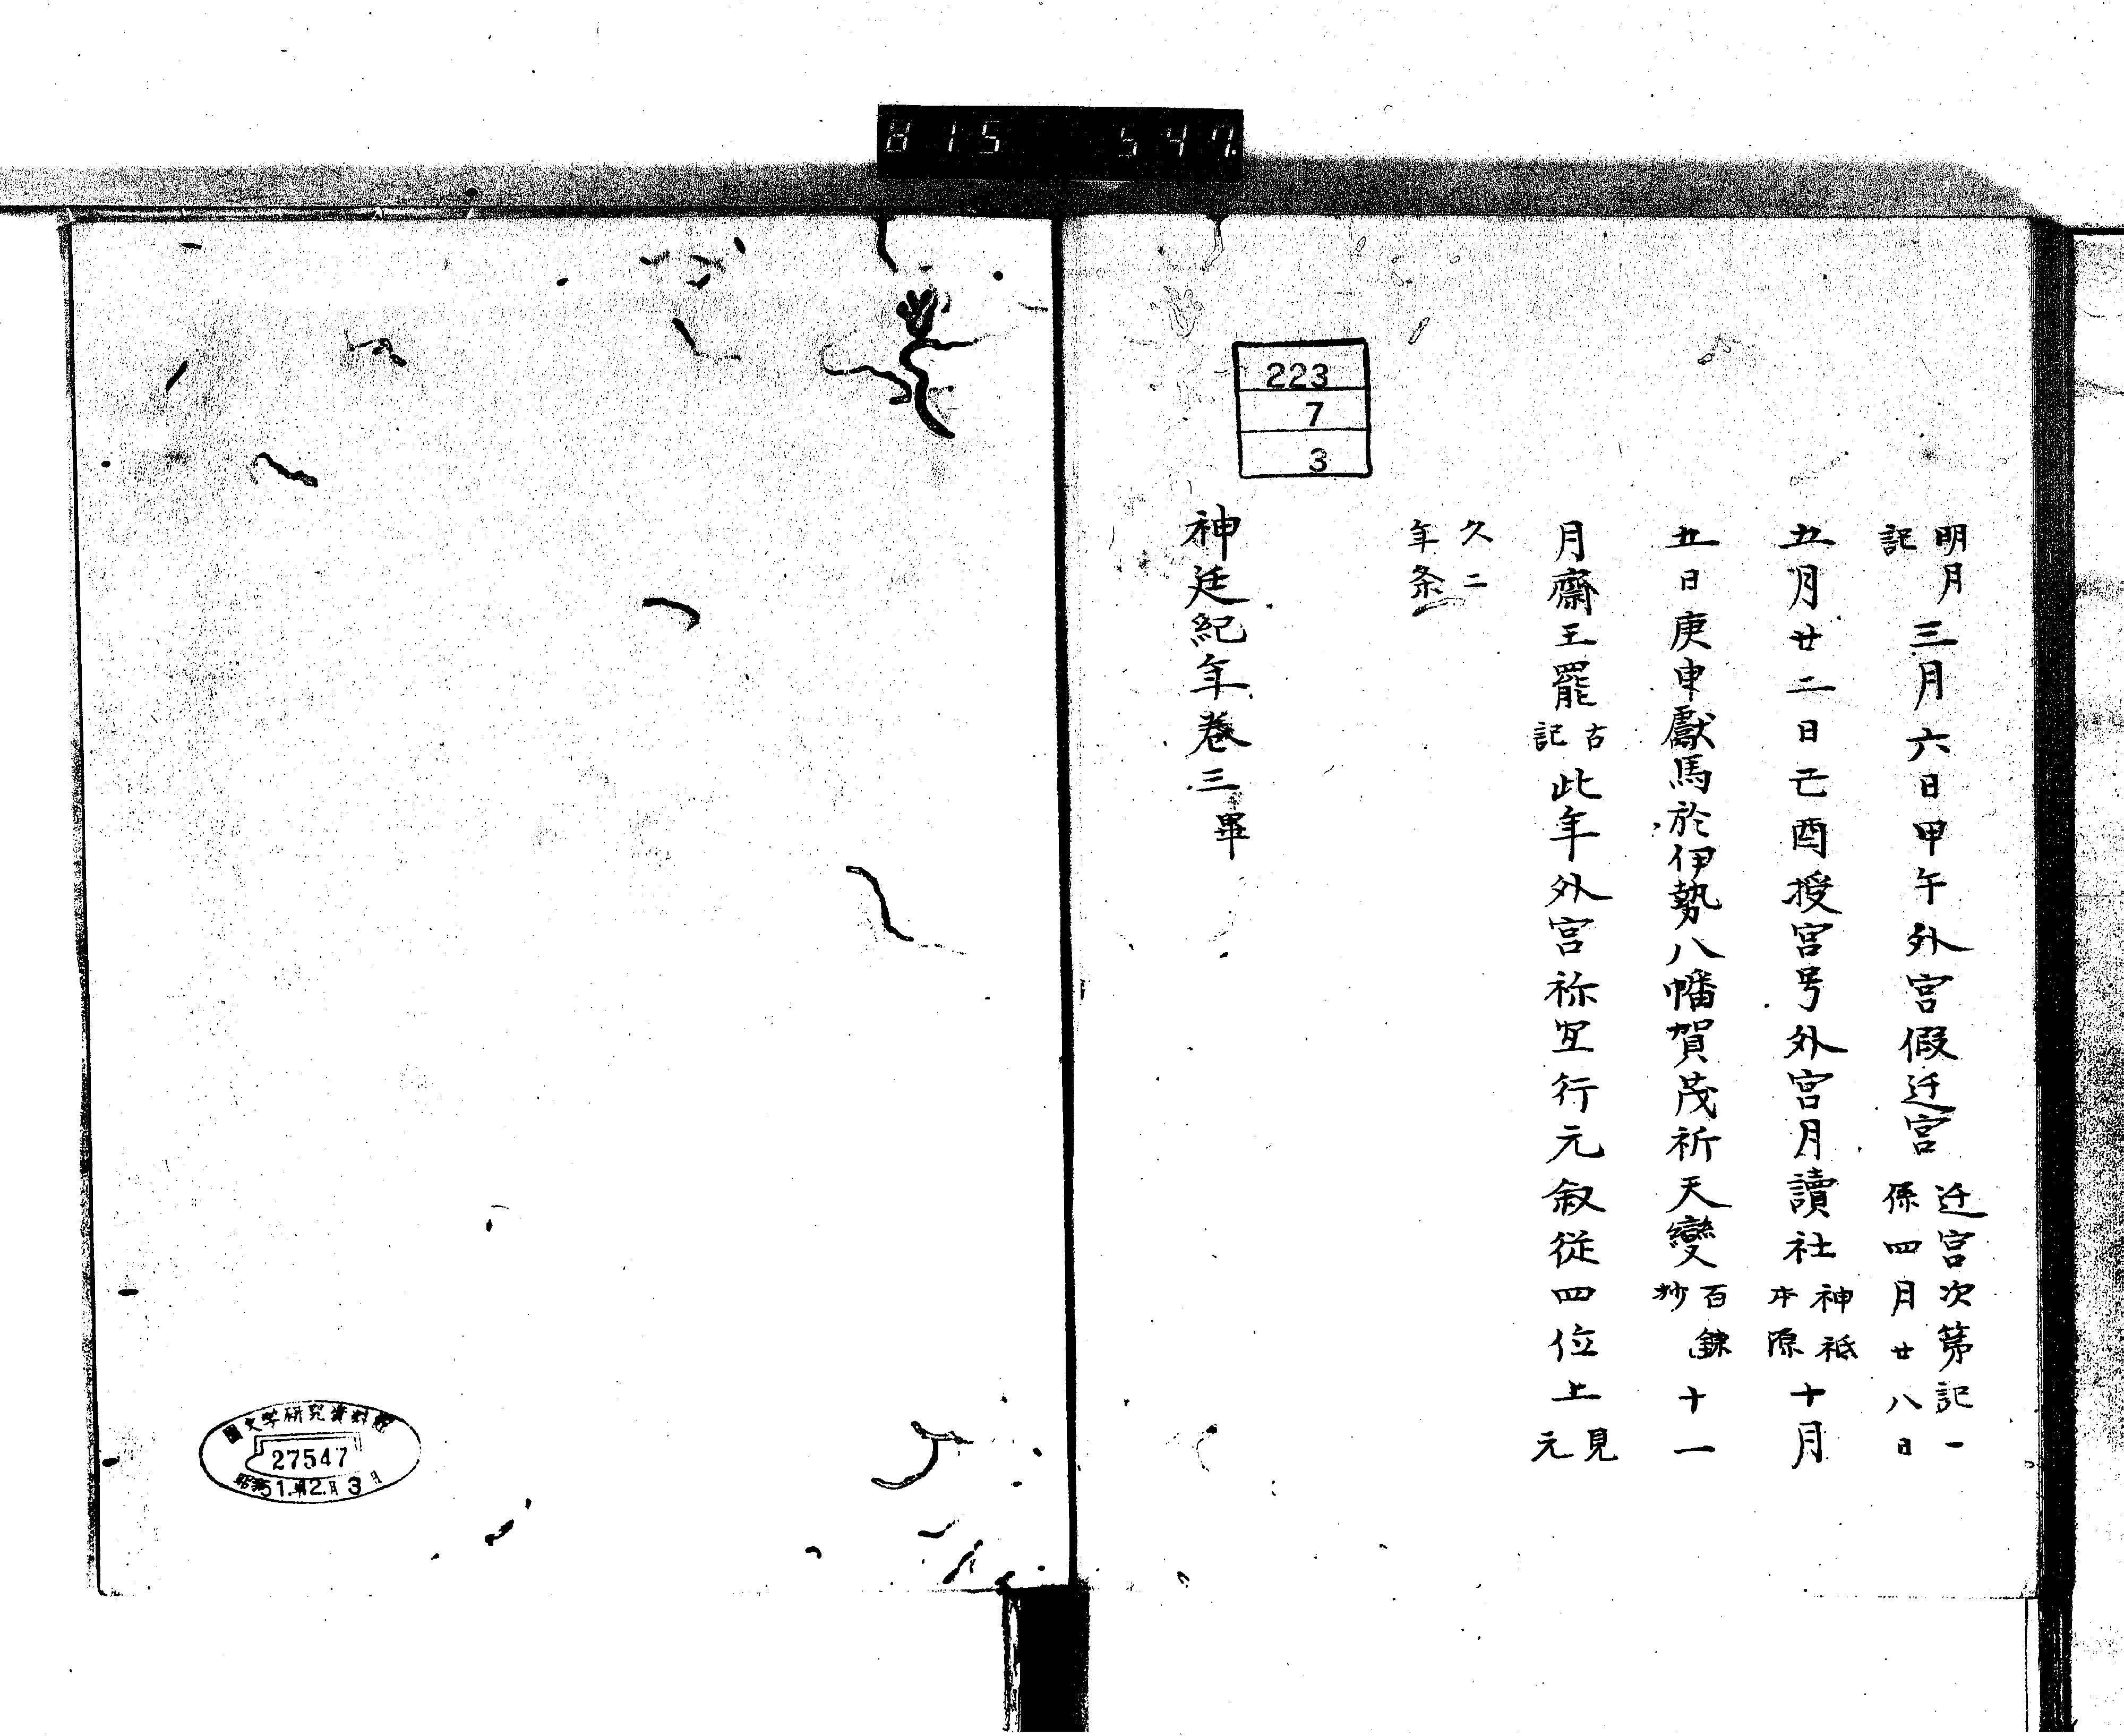 815 547
223
7
3
明月
記
三月六日甲午外宮假迁宮
迁宮次第記一
係四月廿八日
五月廿二日己酉授宮号外宮月讀社
神祗
本原
十月
五日庚申獻馬於伊勢八幡賀茂祈天變
百鍊
抄
十一
月齋王罷
古
記
此年外宮祢宜行元叙從四位上
見
元
久二
年条
神廷紀年卷三畢
國文学研究資料館
27547
昭和51.12.3